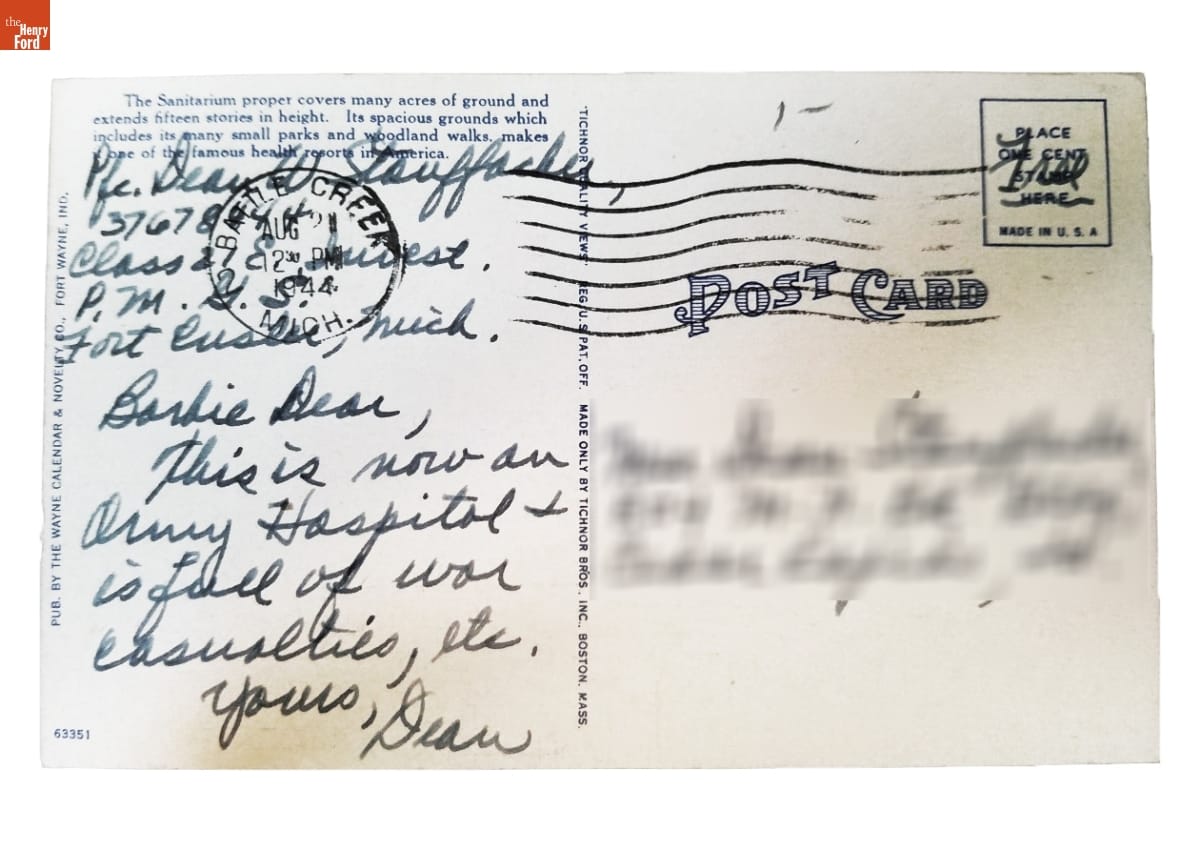 the
Henry
Ford
The Sanitarium proper covers many acres of ground and
extends fifteen stories in height. Its spacious grounds which
includes its many small parks and woodland walks, makes
it one of the famous health resorts in America.
Pfc. Dean Stauffacher,
37678
Class 27 Invest.
P. M. G. S.
Fort Custer, Mich.
BATTLE CREEK
AUG 21
12 30 PM
1944
MICH.
Barbie Dear,
This is now an
Army Hospital &
is full of war
casualties, etc.
Yours,
Dean
63351
PUB. BY THE WAYNE CALENDAR & NOVELTY CO., FORT WAYNE, IND.
"TICHNOR QUALITY VIEWS" REG. U. S. PAT. OFF. MADE ONLY BY TICHNOR BROS., INC., BOSTON, MASS.
1-
PLACE
ONE CENT
STAMP
HERE
MADE IN U. S. A
Free
POST CARD